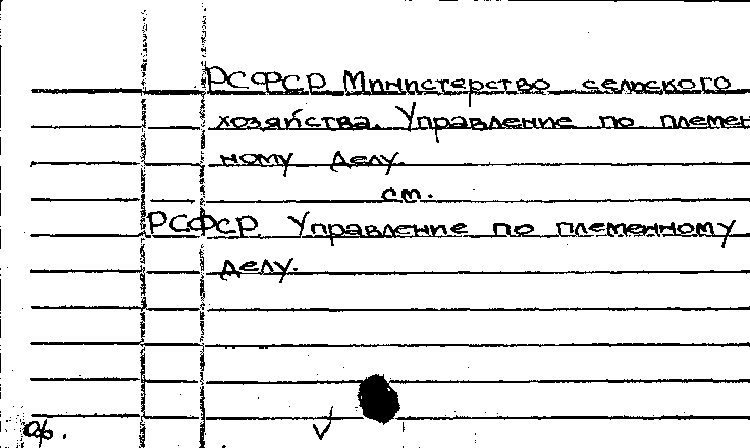 РСФСР Министерство сельского
хозяйства. Управление по племен
ному делу.
см.
РСФСР Управление по племенному
делу.